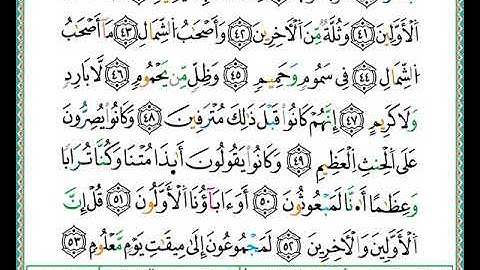 ٱلْأَوَّلِينَ ٤١ وَثُلَّةٌ مِّنَ ٱلْأٓخِرِينَ ٤٢ وَأَصْحَٰبُ ٱلشِّمَالِ ٤٣ مَآ أَصْحَٰبُ
ٱلشِّمَالِ ٤٤ فِى سَمُومٍ وَحَمِيمٍ ٤٥ وَظِلٍّ مِّن يَحْمُومٍ ٤٦ لَّا بَارِدٍ
وَلَا كَرِيمٍ ٤٧ إِنَّهُمْ كَانُوا۟ قَبْلَ ذَٰلِكَ مُتْرَفِينَ ٤٨ وَكَانُوا۟ يُصِرُّونَ
عَلَى ٱلْحِنثِ ٱلْعَظِيمِ ٤٩ وَكَانُوا۟ يَقُولُونَ أَىِٕذَا مُتْنَا وَكُنَّا تُرَابًا
وَعِظَٰمًا أَ۟نَّا لَمَبْعُوثُونَ ٥٠ أَوَءَابَآؤُنَا ٱلْأَوَّلُونَ ٥١ قُلْ إِنَّ
ٱلْأَوَّلِينَ وَٱلْأٓخِرِينَ ٥٢ لَمَجْمُوعُونَ إِلَىٰ مِيقَٰتِ يَوْمٍ مَّعْلُومٍ ٥٣